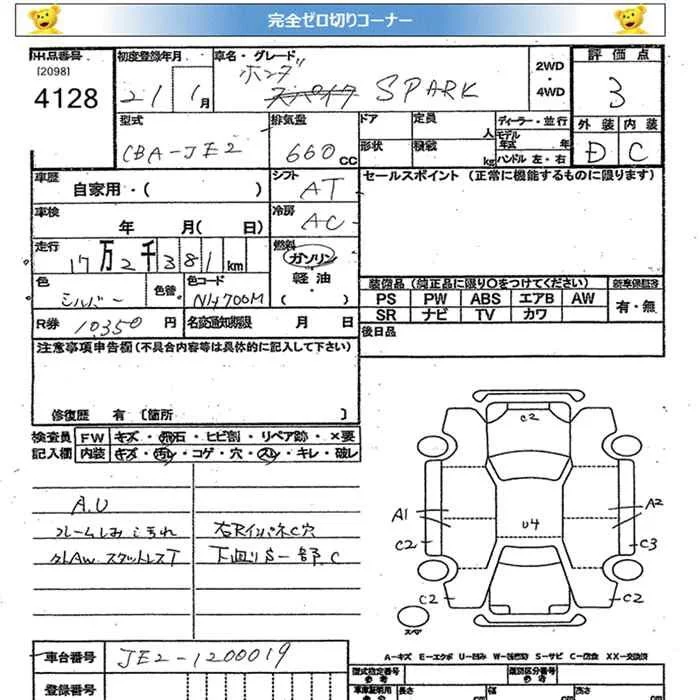 完全ゼロ切りコーナー
出品番号 初度登録年月 車名・グレード 2WD・4WD 評価点
[2098]
4128 21 1月 ホンダ SPARK 3
型式 排気量 ドア 定員 人 ディーラー・並行 外装 内装
CBA-JE2 660CC 形状 積載 kg モデル年式 年 ハンドル 左・右 D C
車歴 自家用・( ) シフト AT セールスポイント (正常に機能するものに限ります)
車検 年 月( 日) 冷房 AC
走行 17万2千381km 燃料 ガソリン 軽油 ・( )
色 シルバー 色替 色コード NH700M 装備品 (純正品に限り〇をつけてください) 新車保証書
PS PW ABS エアB AW 有・無
SR ナビ TV カワ
R券 10350円 名変通知期限 月 日 後日品
注意事項申告欄 (不具合内容等は具体的に記入して下さい)
修復歴 有 [箇所 ]
検査員 FW キズ・飛石・ヒビ割・リペア跡・×要
記入欄 内装 キズ・汚レ・コゲ・穴・スレ・キレ・破レ
A.U
フレームしみこ汚れ 右RインパネC穴
外AW スタットレスT 下回りS一部C
C2
A1 A2
U4
C2 C3
C2 C2
スペア
A-キズ E-エクボ U-凹み S-サビ C-腐食 XX-交換済
車台番号 JE2-1200019
型式指定番号 参考 類別区分番号 参考
登録番号 車庫証明用 参考 長さ cm 幅 cm 高さ cm